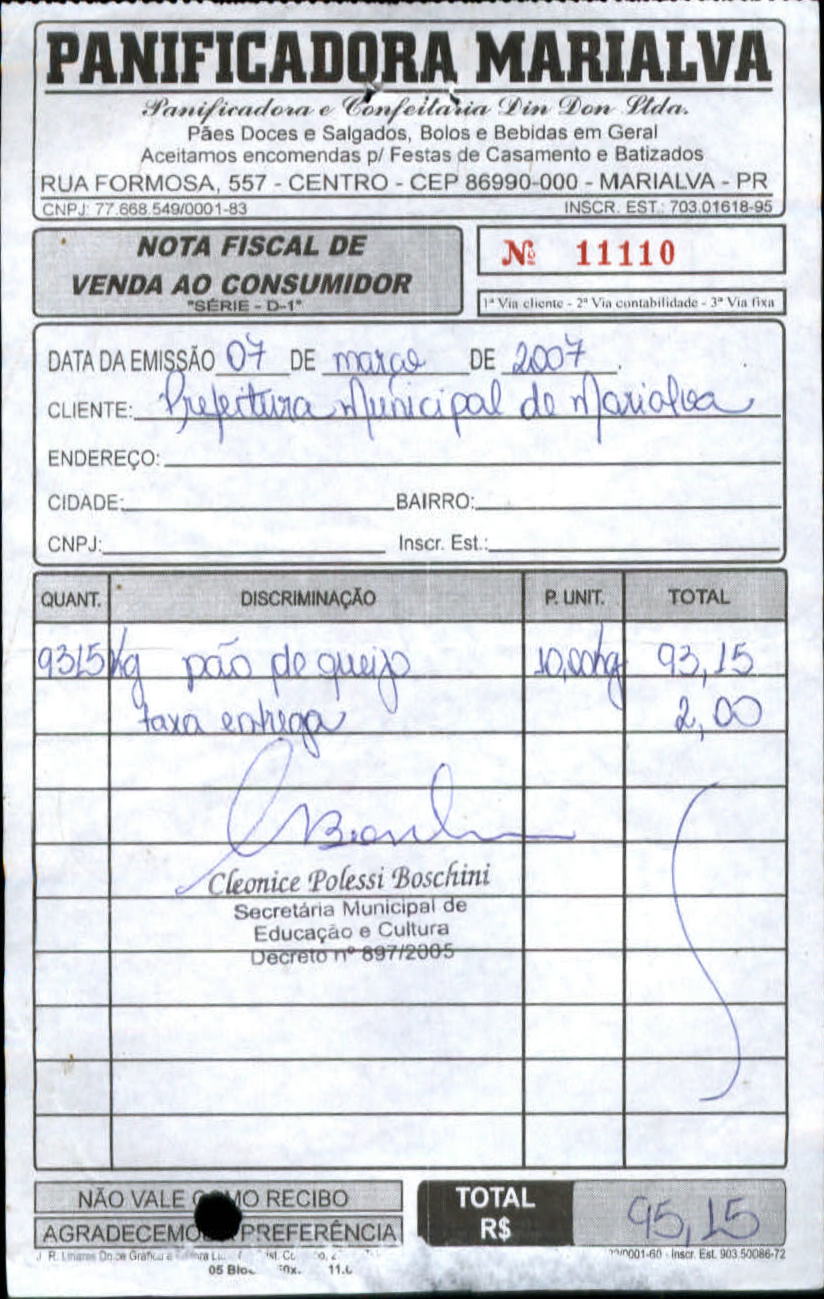 PANIFICADORA MARIALVA
Panificadora e Confeitaria Din Don Ltda.
Pães Doces e Salgados, Bolos e Bebidas em Geral
Aceitamos encomendas p/ Festas de Casamento e Batizados
RUA FORMOSA, 557 - CENTRO - CEP 86990-000 - MARIALVA - PR
CNPJ: 77.668.549/0001-83 INSCR. EST.: 703.01618-95
NOTA FISCAL DE
VENDA AO CONSUMIDOR
"SÉRIE - D-1"
Nº 11110
1ª Via cliente - 2ª Via contabilidade - 3ª Via fixa
DATA DA EMISSÃO 07 DE março DE 2007
CLIENTE: Prefeitura Municipal de Marialva
ENDEREÇO:
CIDADE: BAIRRO:
CNPJ: Inscr. Est.:
QUANT. DISCRIMINAÇÃO P. UNIT. TOTAL
9315 kg pão de queijo 10,00 kg 93,15
taxa entrega 2,00
Cleonice Polessi Boschini
Secretária Municipal de
Educação e Cultura
Decreto nº 897/2005
NÃO VALE COMO RECIBO
AGRADECEMOS PREFERÊNCIA
TOTAL
R$ 95,15
J. R. Linares
/0001-60 - Inscr. Est. 903.50086-72
05